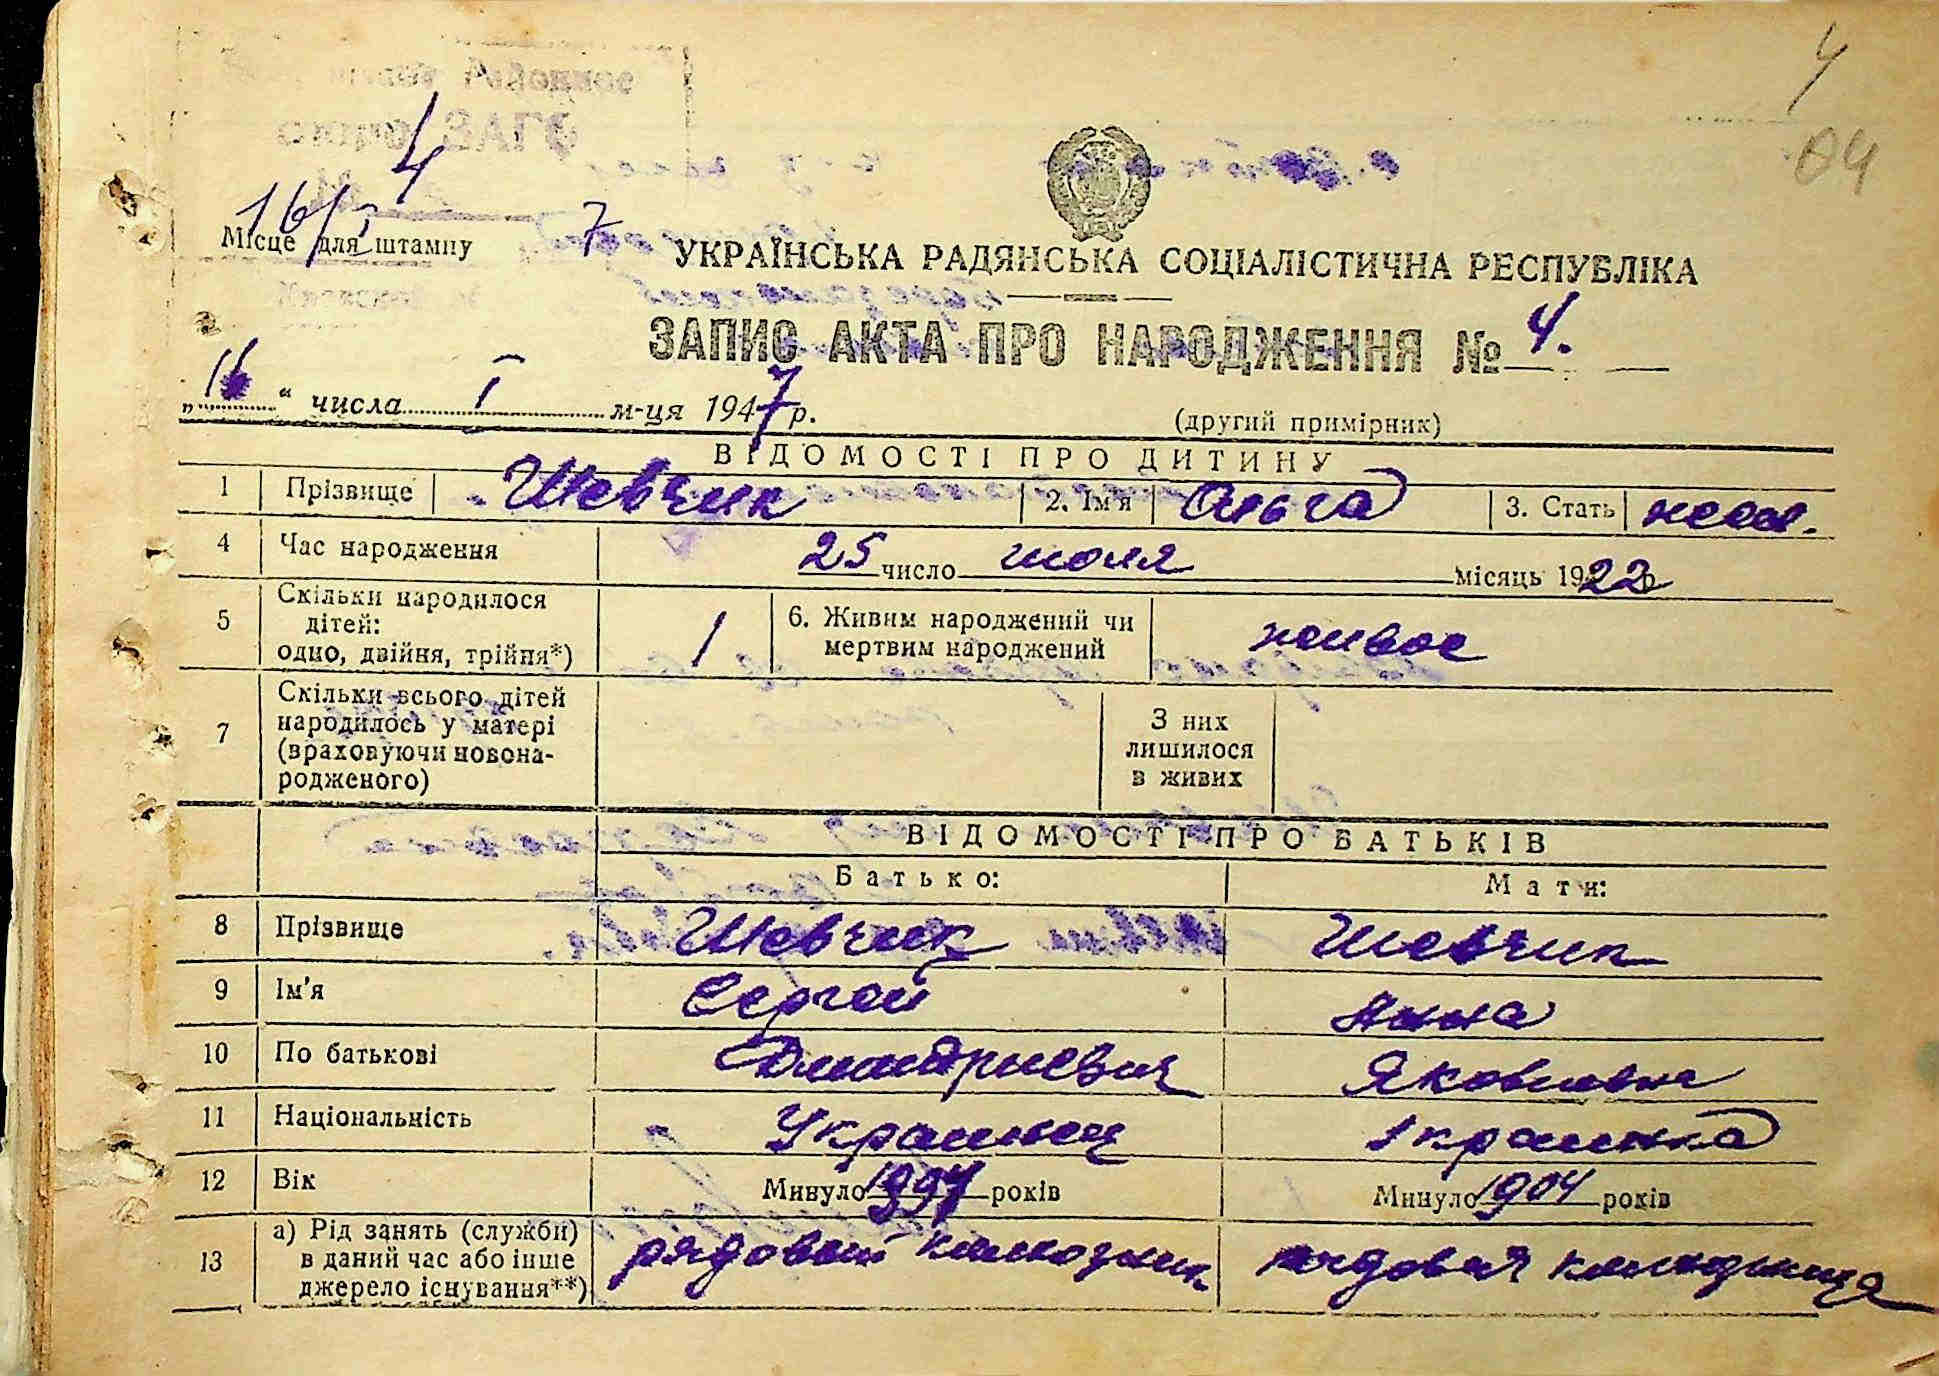 4
04
Районное
бюро ЗАГС
4
16/I 7
Місце для штампу
УКРАЇНСЬКА РАДЯНСЬКА СОЦІАЛІСТИЧНА РЕСПУБЛІКА
ЗАПИС АКТА ПРО НАРОДЖЕННЯ № 4.
„16“ числа I м-ця 1947 р.
(другий примірник)
ВІДОМОСТІ ПРО ДИТИНУ
1 Прізвище Шевчик 2. Ім'я Ольга 3. Стать жен.
4 Час народження 25 число июля місяць 1922 р
5 Скільки народилося дітей: одно, двійня, трійня*) 1 6. Живим народжений чи мертвим народжений живое
7 Скільки всього дітей народилось у матері (враховуючи новонародженого) З них лишилося в живих
ВІДОМОСТІ ПРО БАТЬКІВ
Батько: Мати:
8 Прізвище Шевчик Шевчик
9 Ім'я Сергей Анна
10 По батькові Дмитриевич Яковлевна
11 Національність Украинец Украинка
12 Вік Минуло 1897 років Минуло 1904 років
13 а) Рід занять (служби) в даний час або інше джерело існування**) рядовой колхозник рядовая колхозница